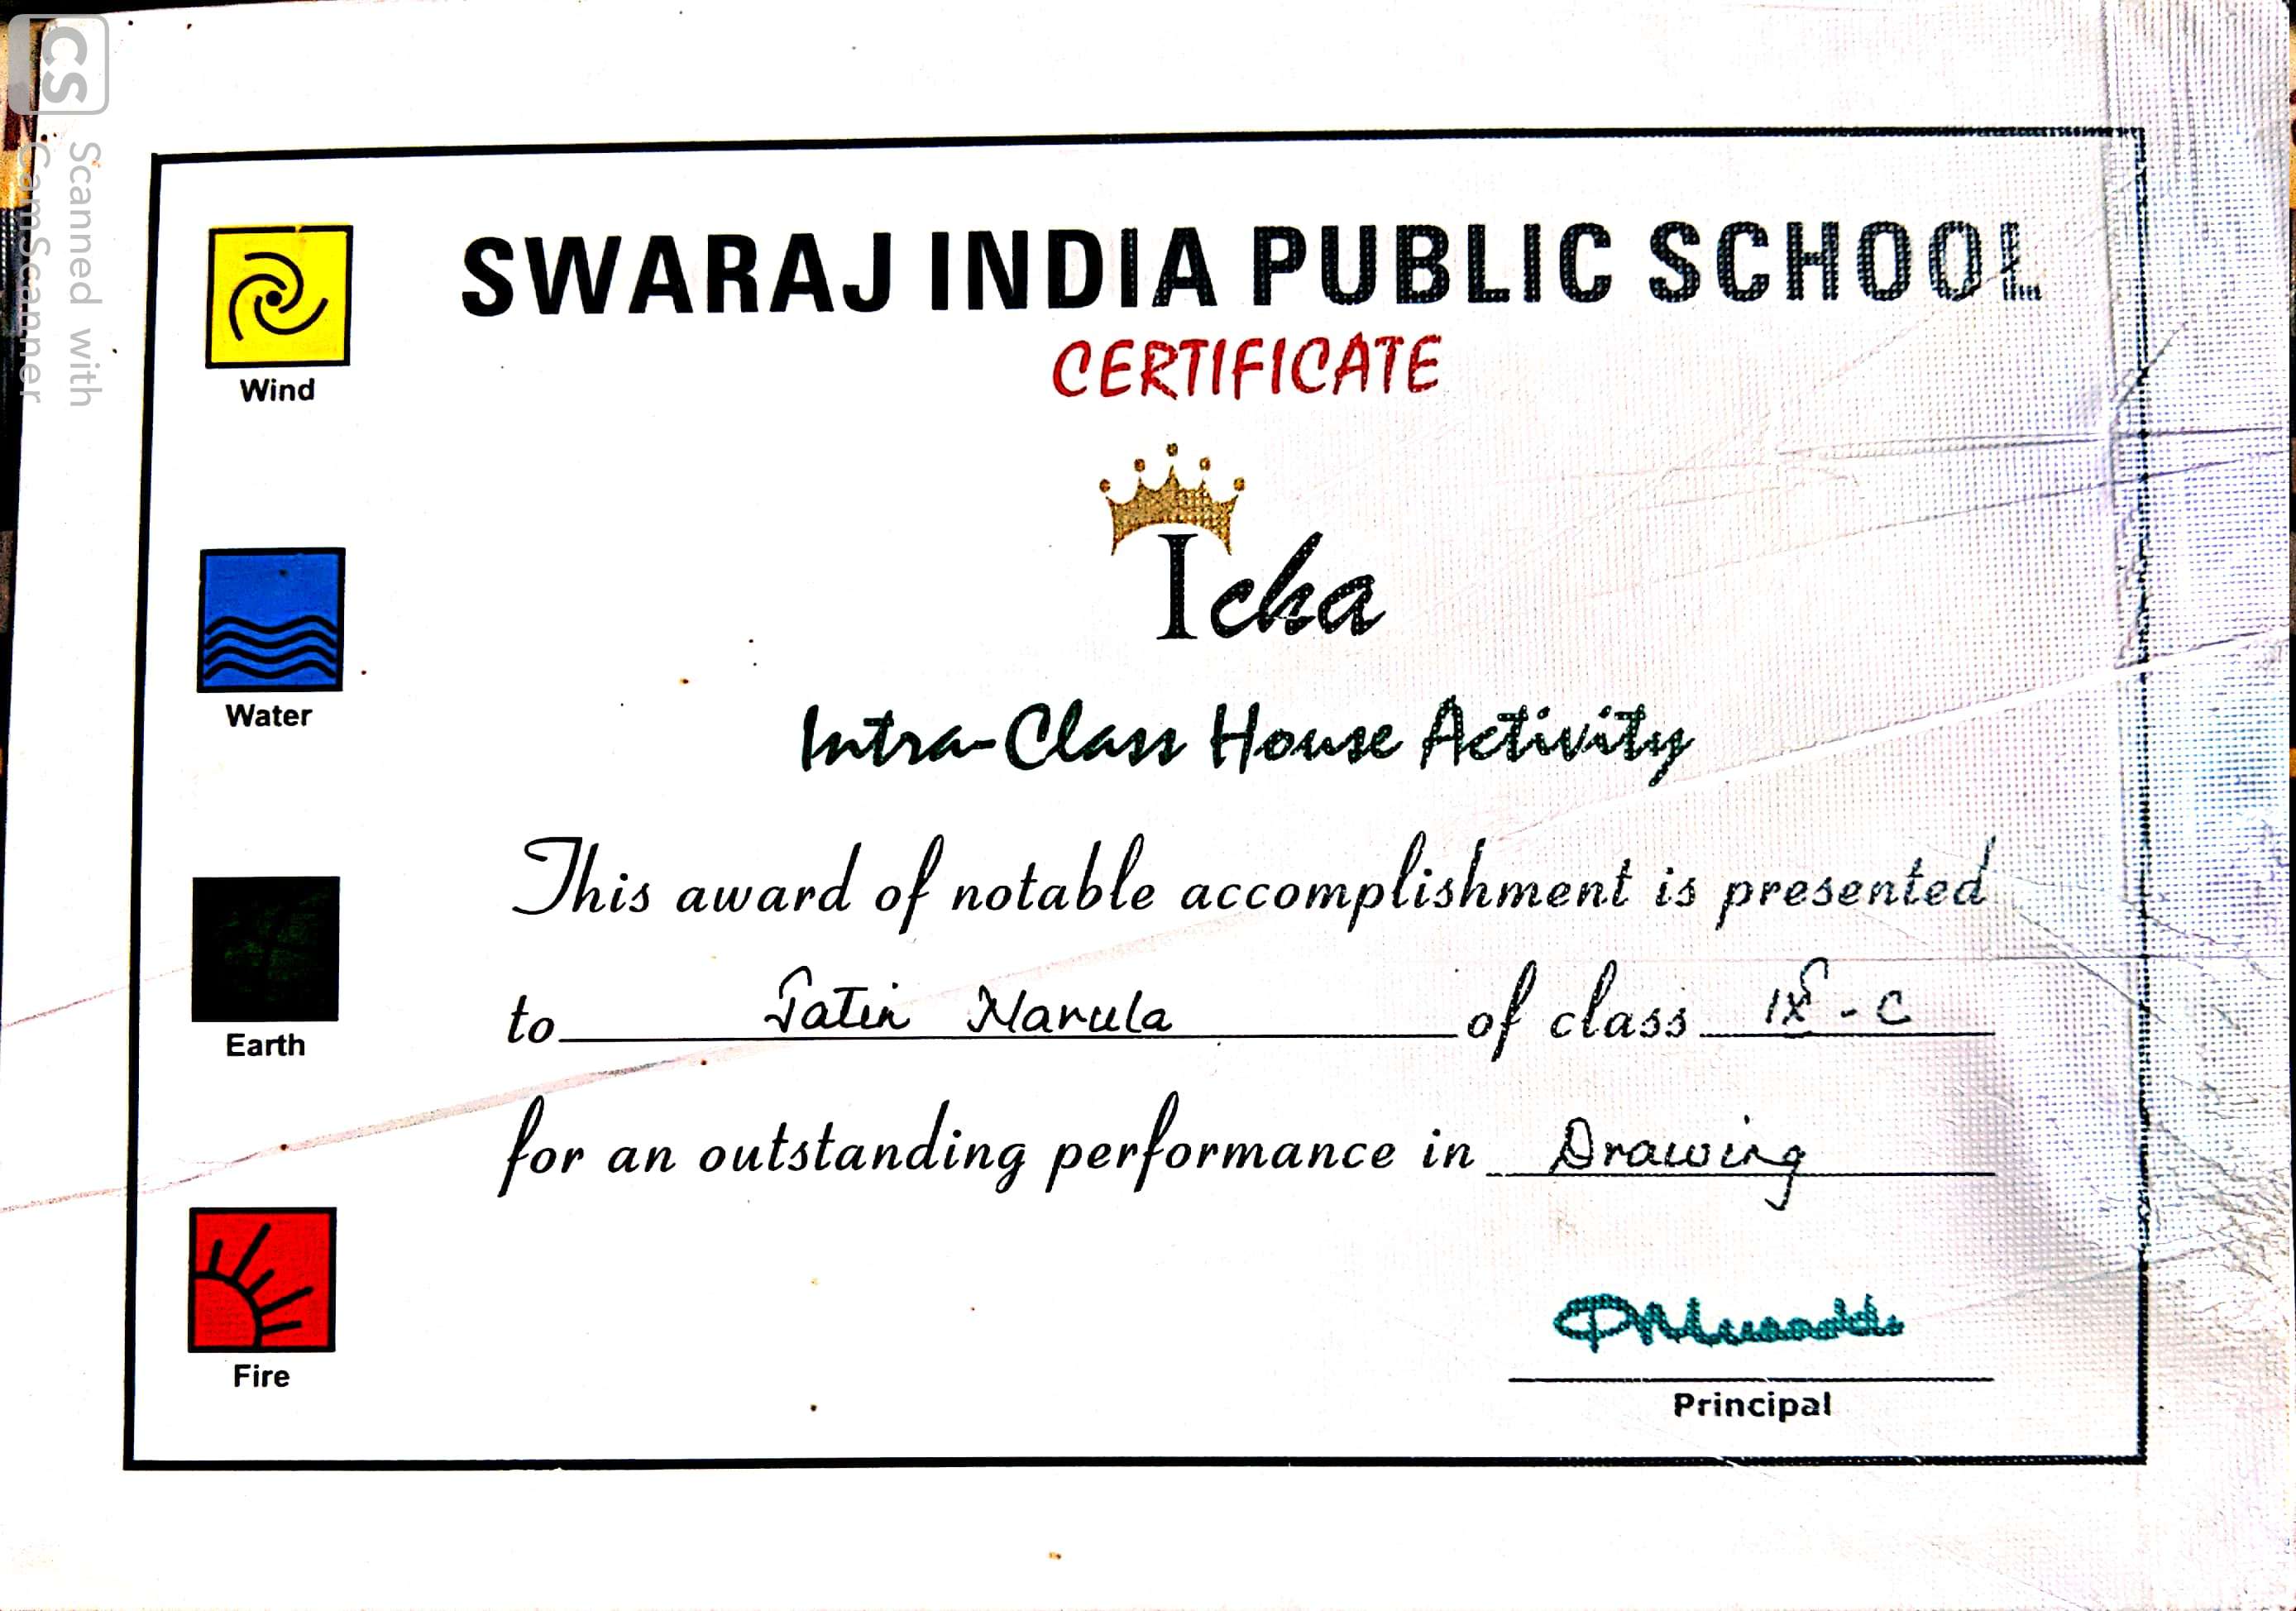 CS Scanned with
CamScanner
SWARAJ INDIA PUBLIC SCHOOL
CERTIFICATE
Icha
Intra-Class House Activity
This award of notable accomplishment is presented
to Jatin Narula of class IX - C
for an outstanding performance in Drawing
Principal
Wind
Water
Earth
Fire